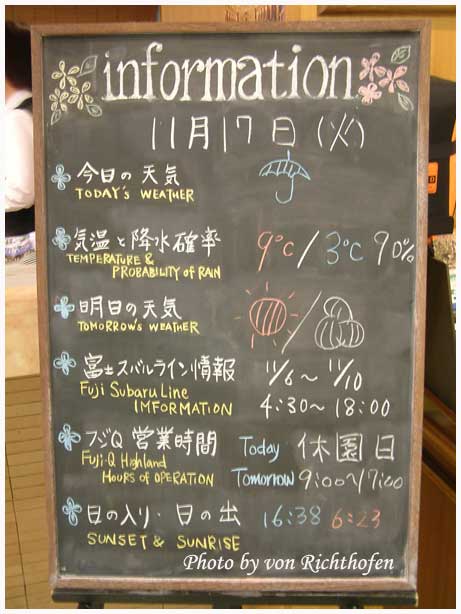 information
11月17日(火)
今日の天気
TODAY'S WEATHER
気温と降水確率 9℃/3℃ 90%
TEMPERATURE &
PROBABILITY of RAIN
明日の天気
TOMORROW'S WEATHER
富士スバルライン情報 11/6～11/10
Fuji Subaru Line
IMFORMATION 4:30～18:00
フジQ 営業時間 Today 休園日
Fuji-Q Highland
HOURS of OPERATION Tomorrow 9:00～17:00
日の入り・日の出 16:38 6:23
SUNSET & SUNRISE
Photo by von Richthofen